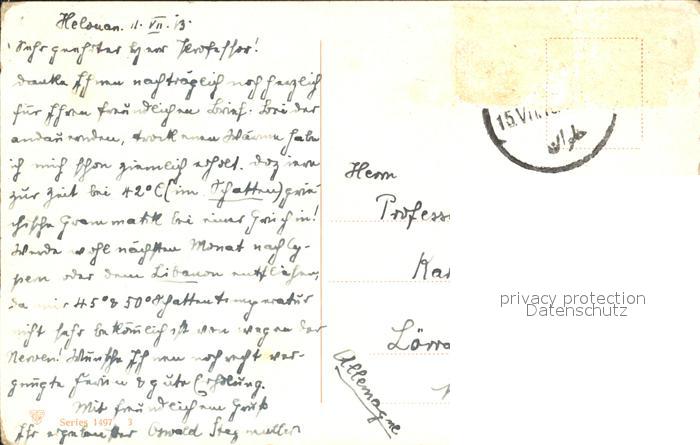 Helouan. 11. VII. 13.
Sehr geehrter Herr Professor!
danke Ihnen nachträglich noch herzlich
für Ihren freundlichen Brief. Bei der
andauernden, trockenen Wärme habe
ich mich schon ziemlich erholt. doziere
zur Zeit bei 42° C (im Schatten) grie-
chische Grammatik bei einer Griechin!
Werde wohl nächsten Monat nach Cy-
pern oder dem Libanon entfliehen,
da mir 45° & 50° Schattentemperatur
nicht sehr bekömmlich ist von wegen der
Nerven! Wünsche Ihnen noch recht ver-
gnügte Ferien & gute Erholung.
Mit freundlichem Gruß
Ihr ergebenster Oswald Stegmüller
Series 1497 3
15.VII.
حلوان
Herrn
Profess
Ka
Lörra
Allemagne
privacy protection
Datenschutz